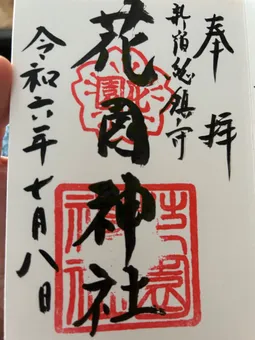 奉拝
新宿総鎮守
花園神社
令和六年十月八日
花園神社